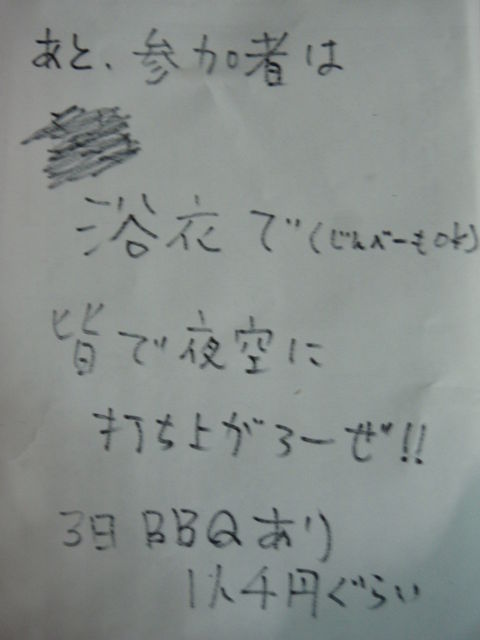 あと、参加者は
浴衣で(じんべーもOK)
皆で夜空に
打ち上がろーぜ!!
3日BBQあり
1人千円ぐらい